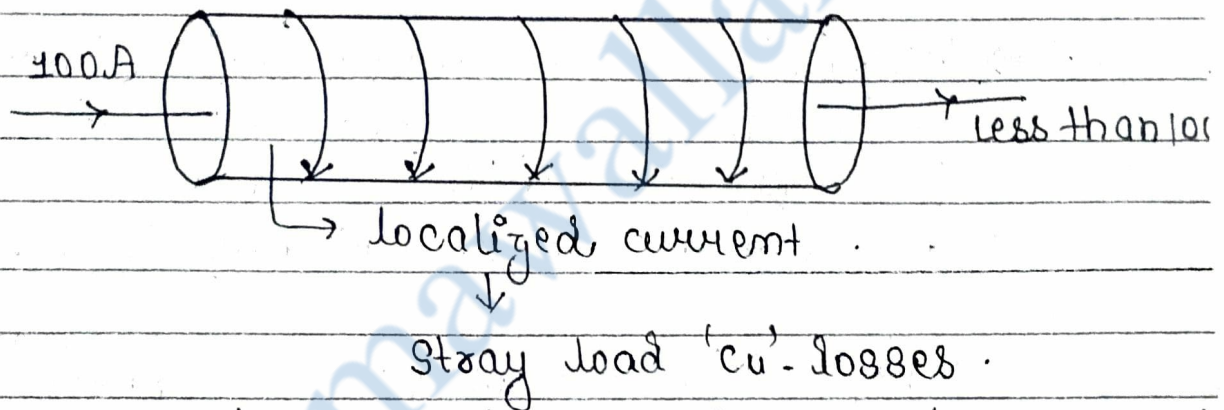 100A
less than
localized current
Stray load 'cu' - losses.